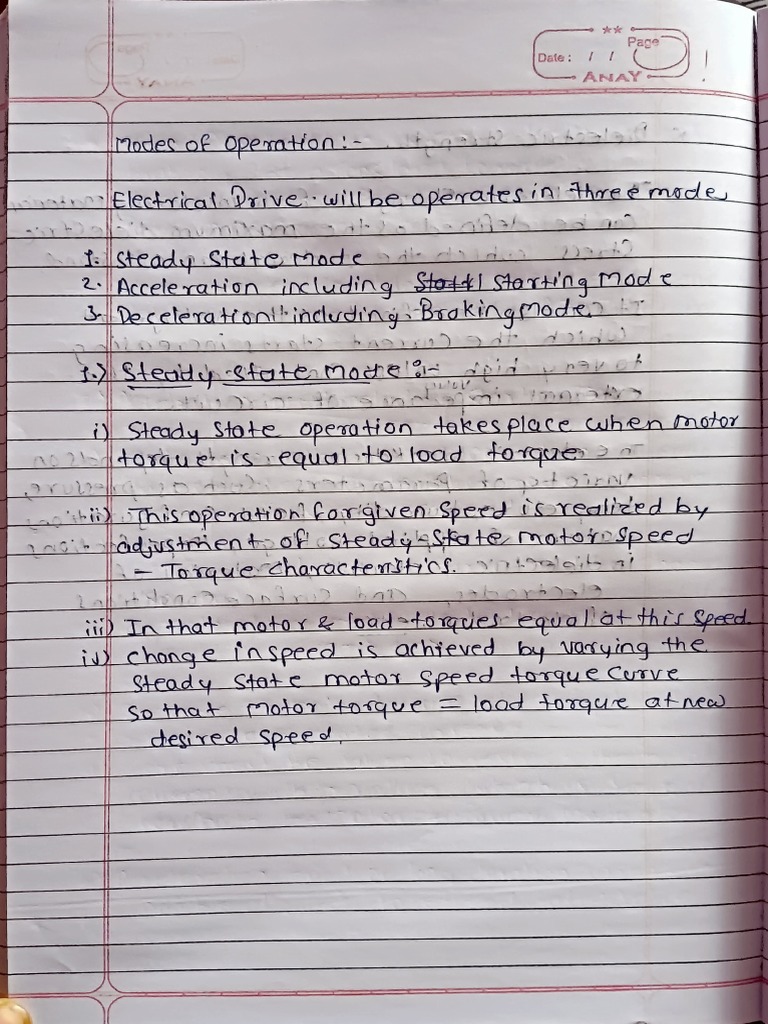 **
Page
Date: / /
ANAY
Modes of operation :-
Electrical Drive will be operates in three mode
1. Steady State Mode
2. Acceleration including starting Mode
3. Deceleration including Braking Mode.
1.) Steady State Mode :-
i) Steady State operation takes place when motor
torque is equal to load torque
ii) This operation for given speed is realized by
adjustment of steady-state motor speed
- Torque characteristics.
iii) In that motor & load torques equal at this speed.
iv) change in speed is achieved by varying the
steady state motor speed torque curve
so that motor torque = load torque at new
desired speed.